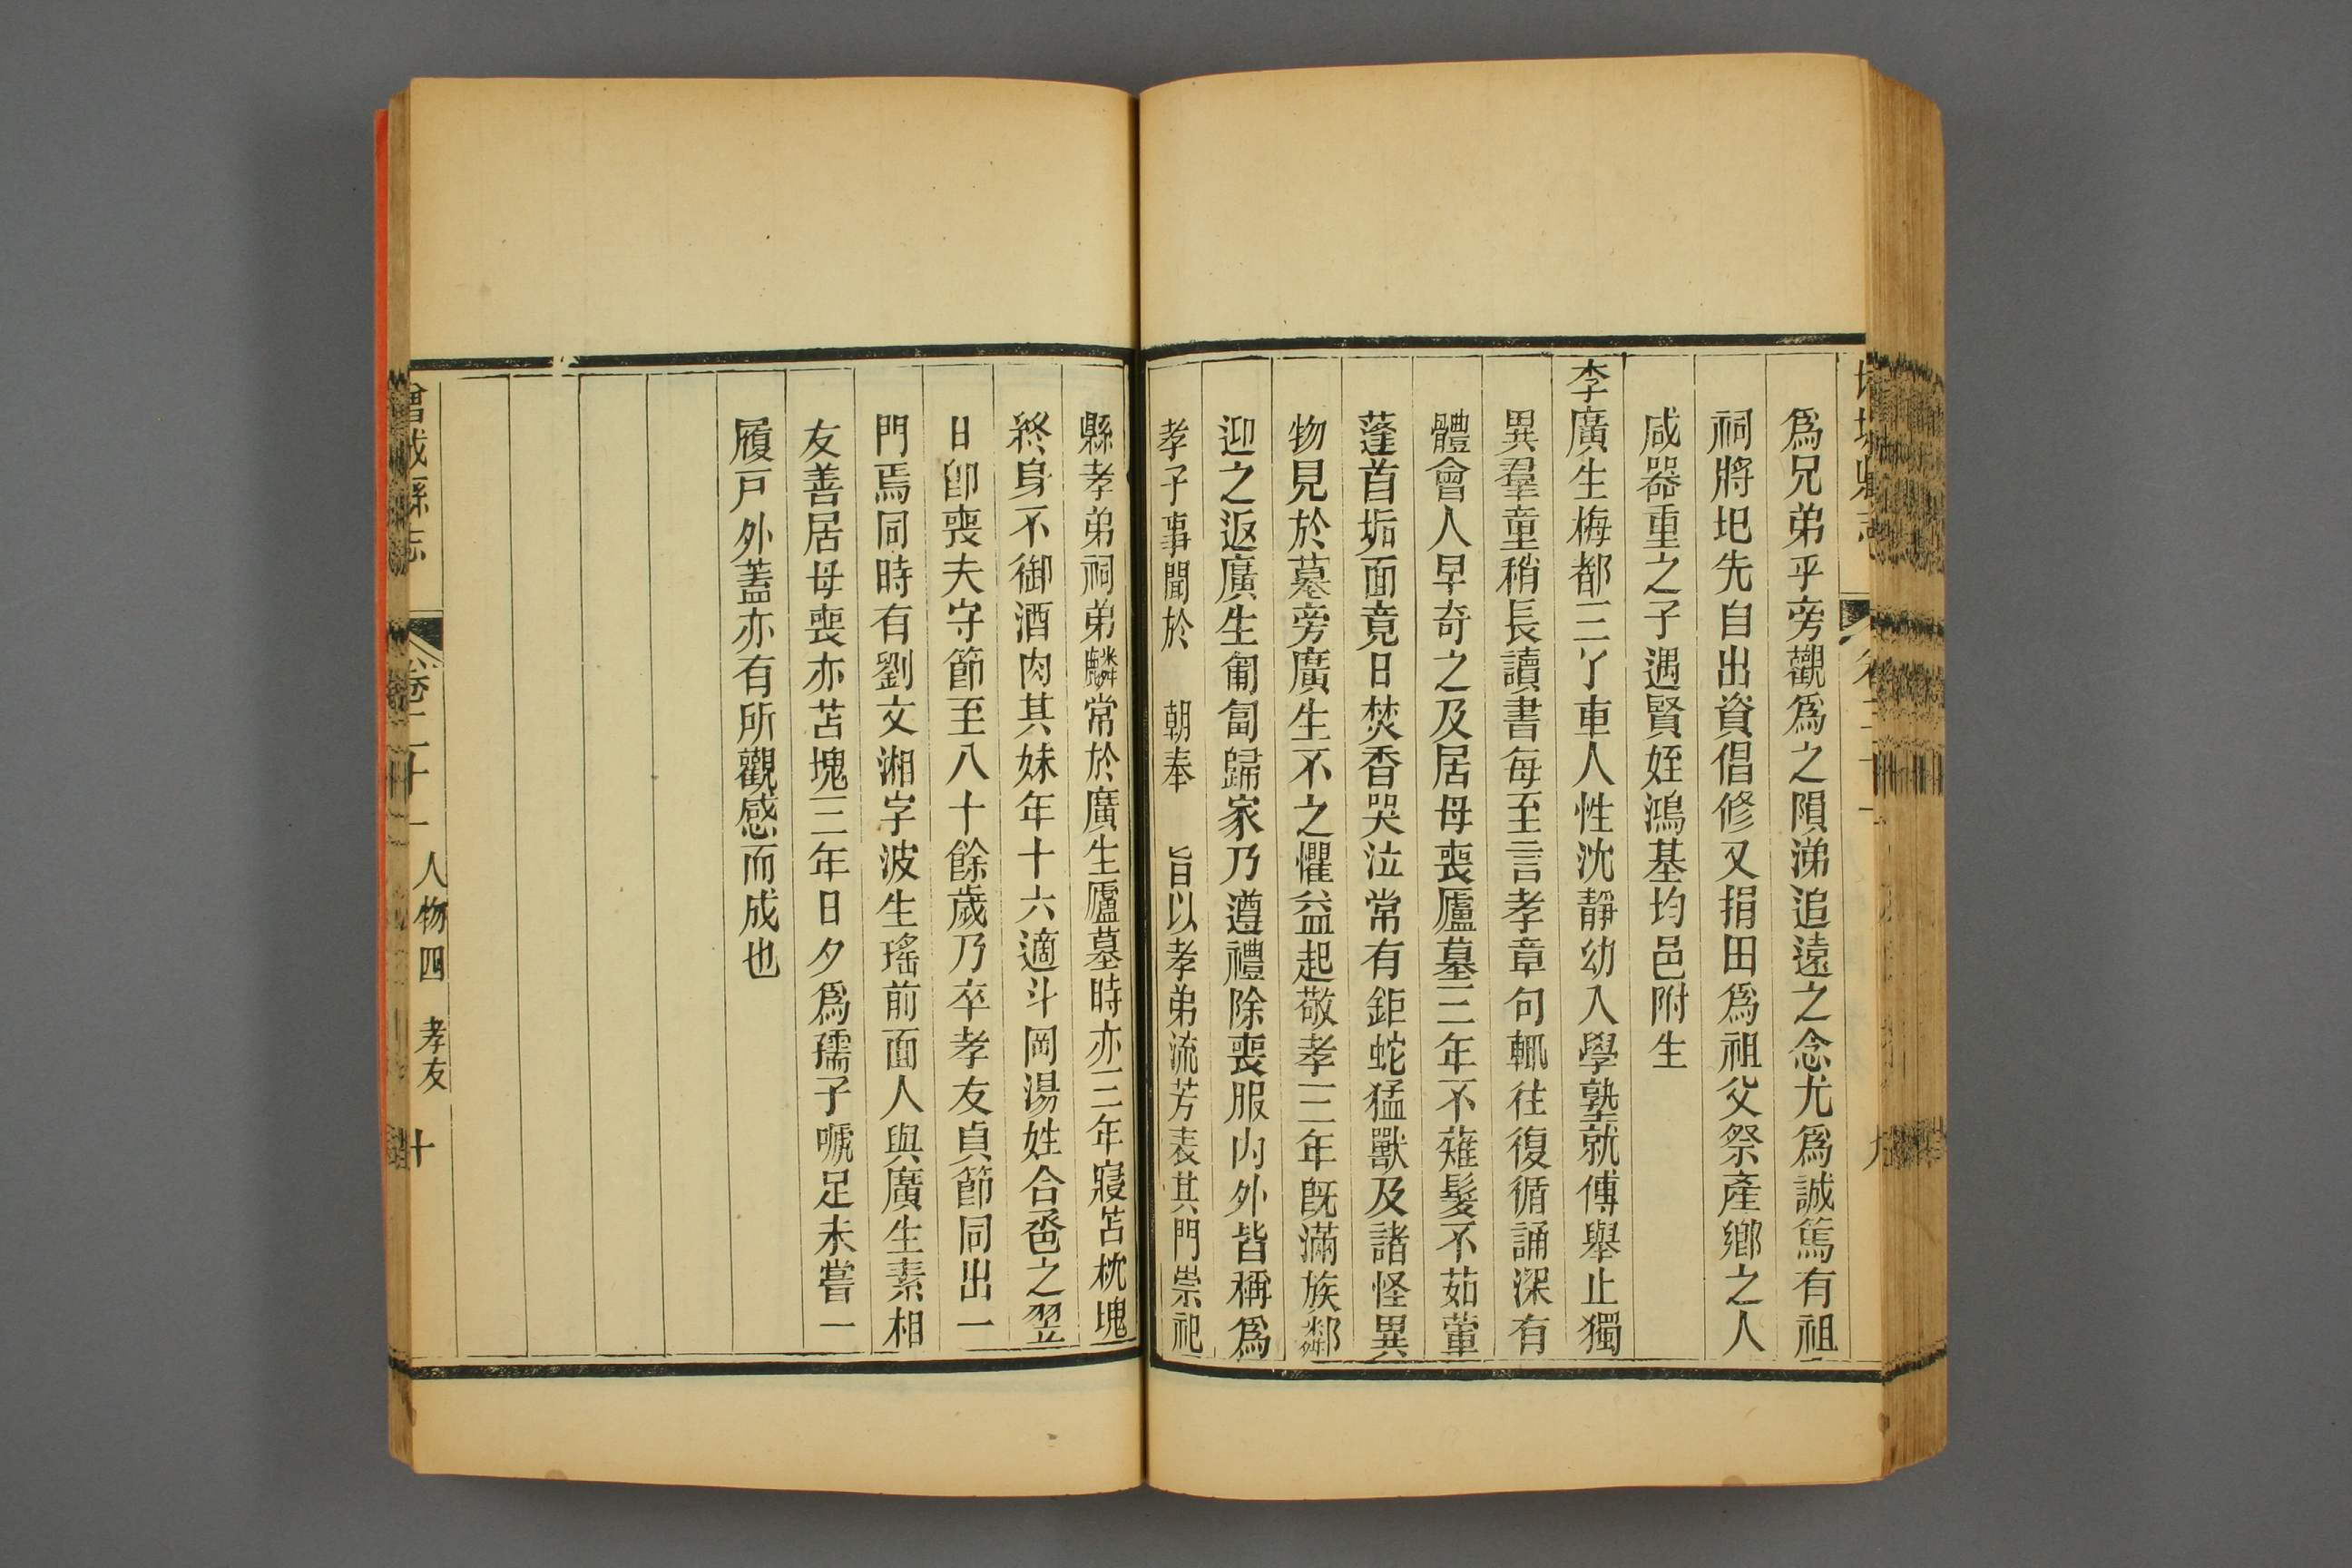 爲兄弟乎旁觀爲之隕涕追遠之念尤爲誠篤有祖
祠將圯先自出資倡修又捐田爲祖父祭產鄉之人
咸器重之子遇賢姪鴻基均邑附生
李廣生梅都三丫車人性沈靜幼入學塾就傅舉止獨
異羣童稍長讀書每至言孝章句輒往復循誦深有
體會人早奇之及居母喪廬墓三年不薙髮不茹葷
蓬首垢面竟日焚香哭泣常有鉅蛇猛獸及諸怪異
物見於墓旁廣生不之懼益起敬孝三年既滿族鄰
迎之返廣生匍匐歸家乃遵禮除喪服內外皆稱爲
孝子事聞於 朝奉 旨以孝弟流芳表其門崇祀
縣孝弟祠弟麟常於廣生廬墓時亦三年寢苫枕塊
終身不御酒肉其妹年十六適斗岡湯姓合卺之翌
日卽喪夫守節至八十餘歲乃卒孝友貞節同出一
門焉同時有劉文湘字波生瑤前面人與廣生素相
友善居母喪亦苫塊三年日夕爲孺子嗁足未嘗一
履戸外蓋亦有所觀感而成也
曾城縣志 卷二十一 人物四 孝友 十